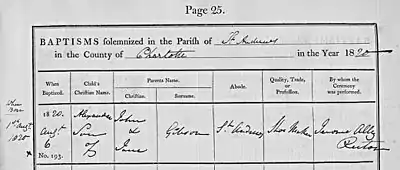 Page 25.
BAPTISMS solemnized in the Parish of St. Andrews
in the County of Charlotte in the Year 1820
When Baptized. Child's Christian Name. Parents Name. Christian. Surname. Abode. Quality, Trade, or Profession. By whom the Ceremony was performed.
When Born 1st Augt 1820
1820. Augt 6 No. 193.
Alexander Son of
John & Jane
Gibson
St Andrews
Shoe Maker
Jerome Alley
Rector